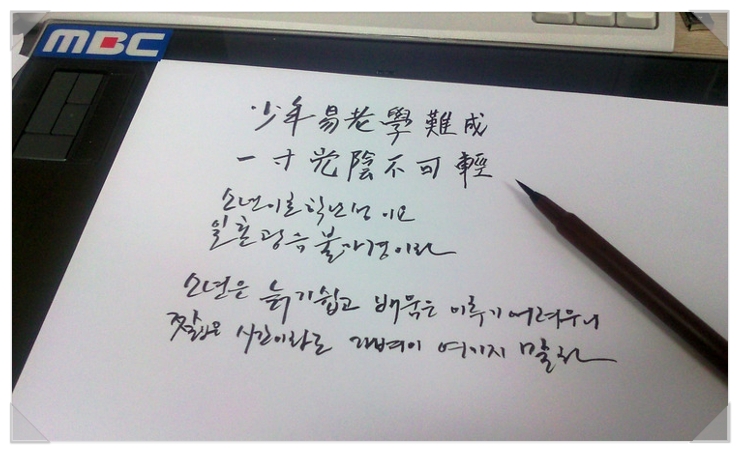 MBC
少年易老學難成
一寸光陰不可輕
소년이로학난성 이요
일촌광음 불가경이라
소년은 늙기쉽고 배움은 이루기 어려우니
짧은 시간이라도 가벼이 여기지 말라